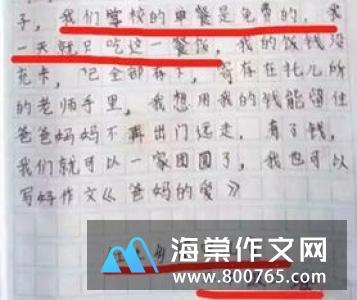 子，我们学校的中餐是免费的，我
一天就只吃这一餐饭，我的饭钱没
花卡，已全部存下，寄存在托儿所
的老师手里，我想用我的钱能留住
爸爸妈妈不再出门远走，有了钱，
我们就可以一家团圆了，我也可以
写好作文《爸妈的爱》
海棠作文网
www.800765.com